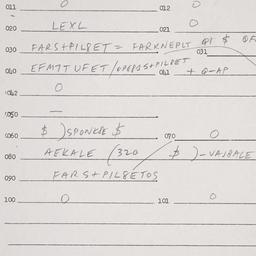 011 0 012 0
020 LEXL 021 0
030 FARS+PILBET = FARKNEPLT 031
040 041 + Q-AP
042 0
050 —
060 $ )SPONKBE $ 070 0
080 AEKALE (320 $ )-VAJBALE
090 FARS+PILBETOS
100 0 101 0